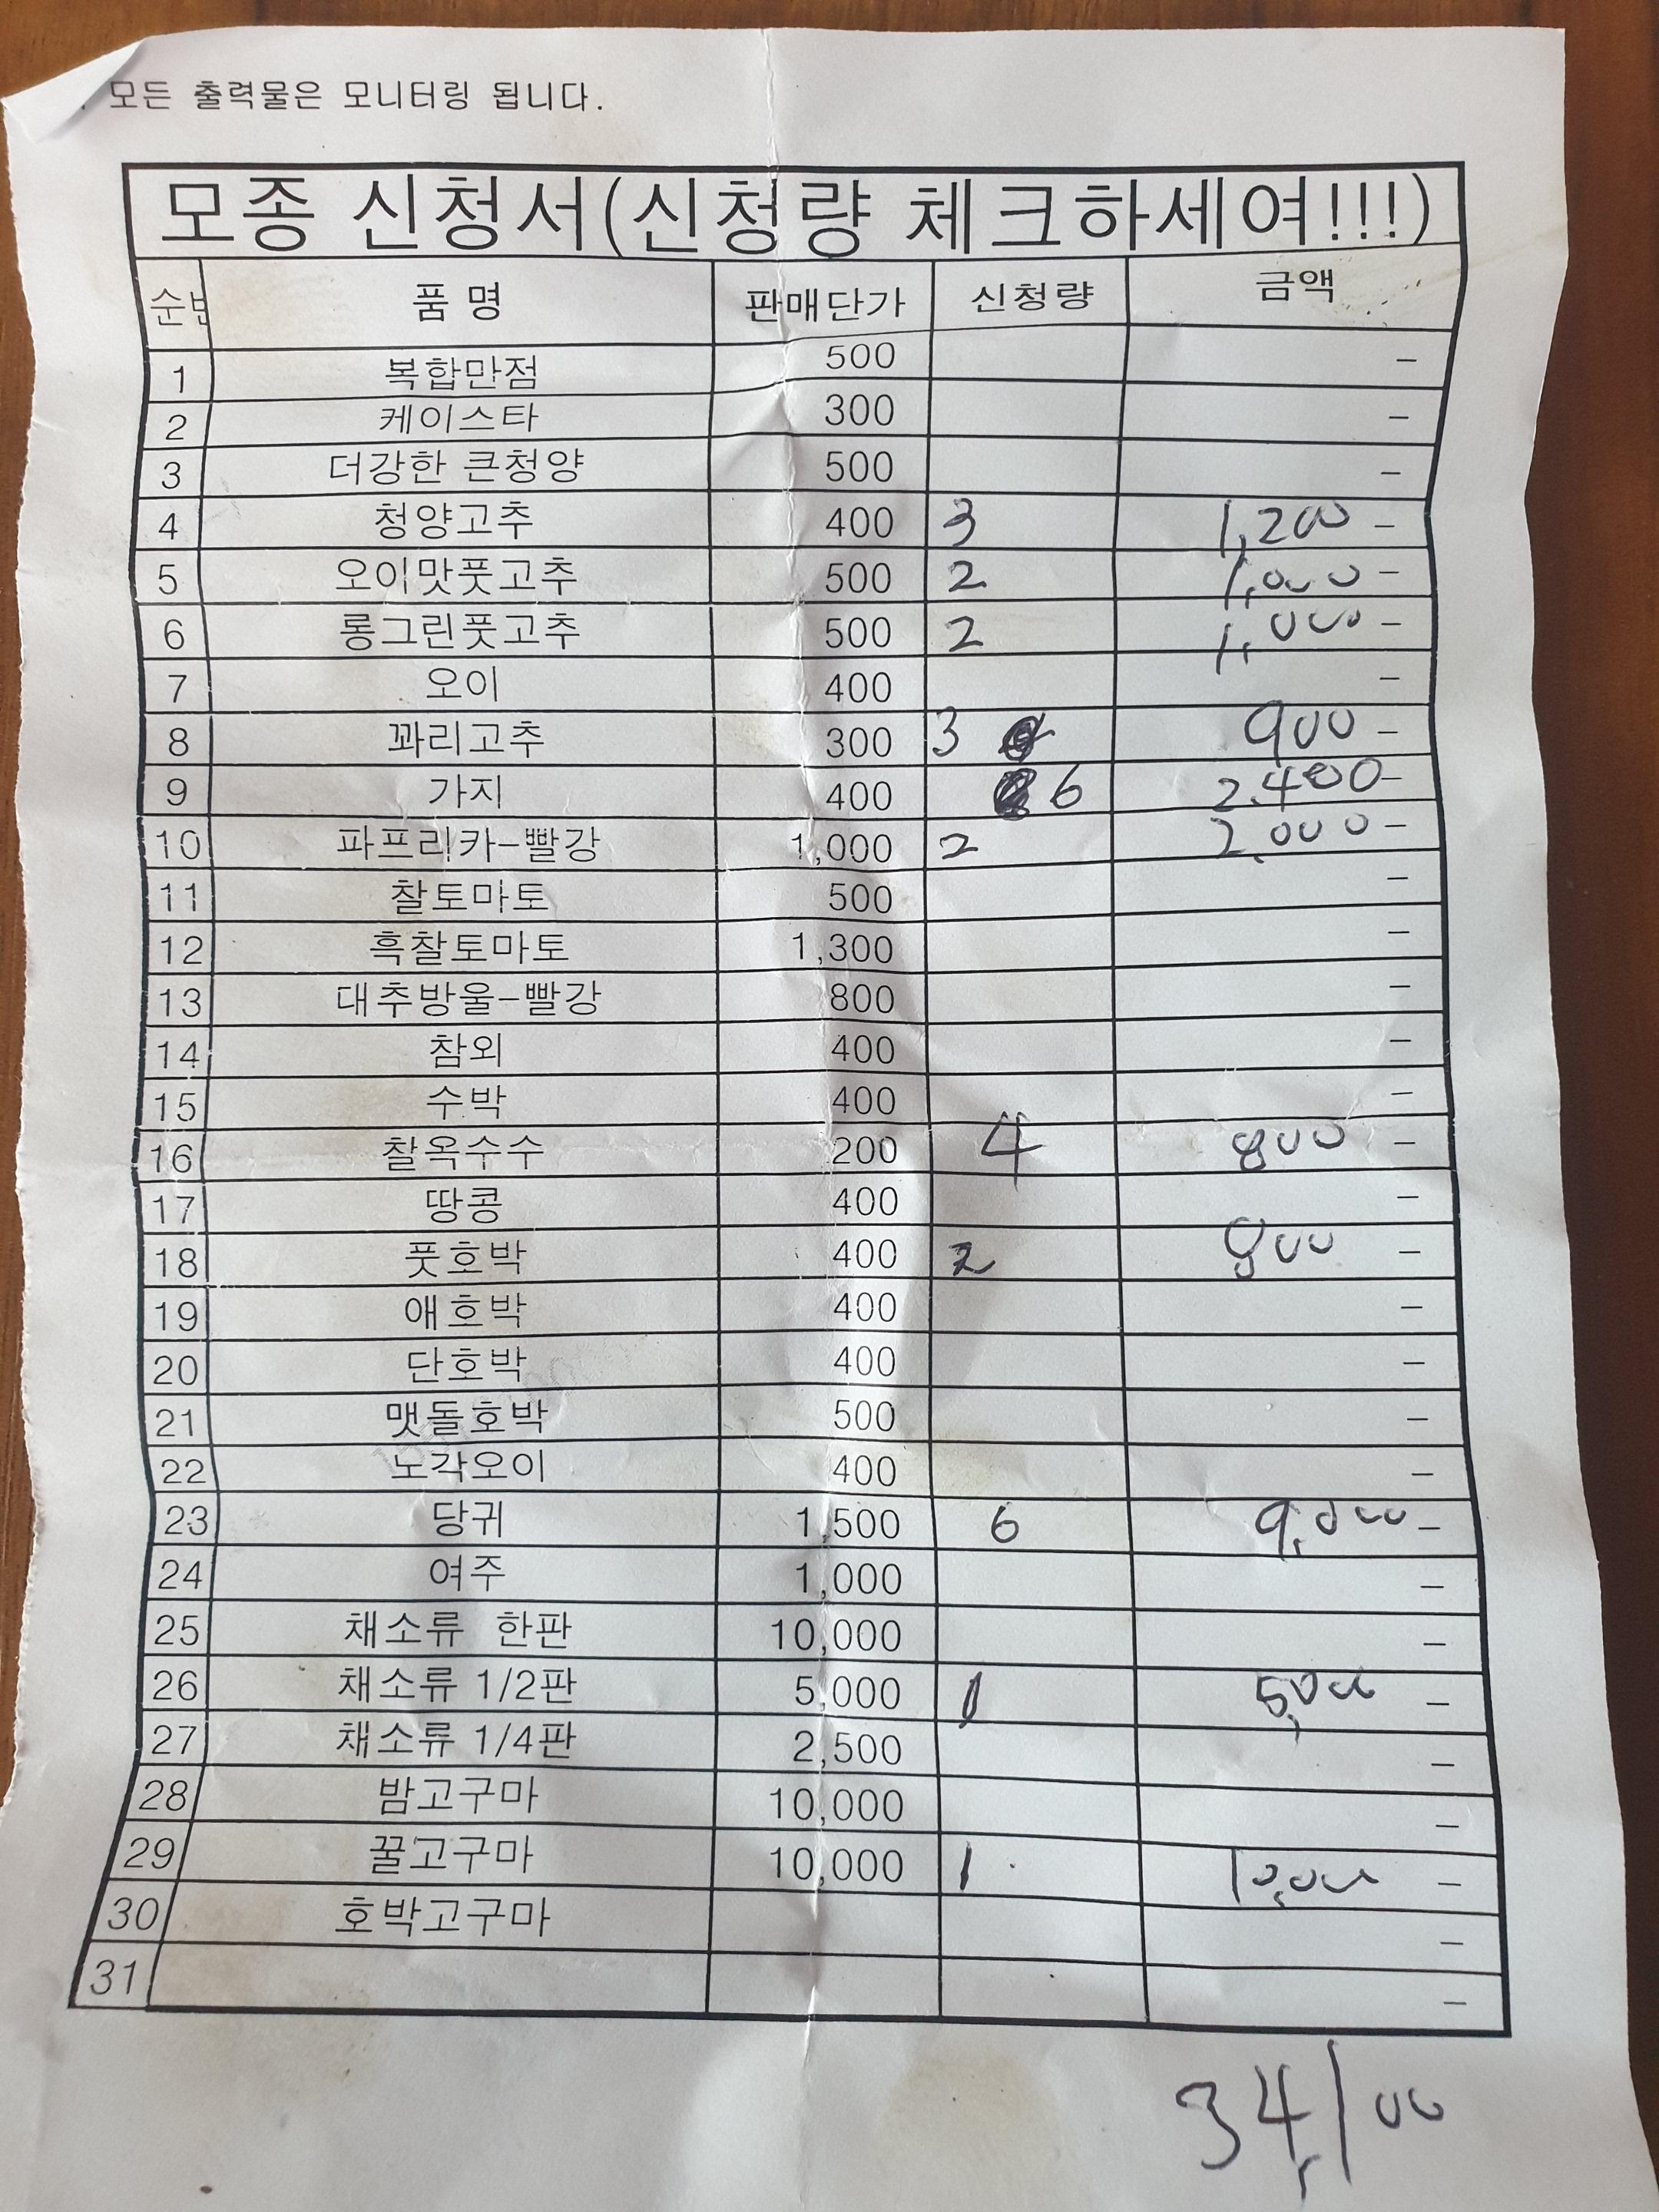 모든 출력물은 모니터링 됩니다.
모종 신청서(신청량 체크하세여!!!)
순번 품 명 판매단가 신청량 금액
1 복합만점 500 -
2 케이스타 300 -
3 더강한 큰청양 500 -
4 청양고추 400 3 1,200 -
5 오이맛풋고추 500 2 1,000 -
6 롱그린풋고추 500 2 1,000 -
7 오이 400 -
8 꽈리고추 300 3 900 -
9 가지 400 6 2.400 -
10 파프리카-빨강 1,000 2 2.000 -
11 찰토마토 500 -
12 흑찰토마토 1,300 -
13 대추방울-빨강 800 -
14 참외 400 -
15 수박 400 -
16 찰옥수수 200 4 800 -
17 땅콩 400 -
18 풋호박 400 2 800 -
19 애호박 400 -
20 단호박 400 -
21 맷돌호박 500 -
22 노각오이 400 -
23 당귀 1,500 6 9,000 -
24 여주 1,000 -
25 채소류 한판 10,000 -
26 채소류 1/2판 5,000 1 5,000 -
27 채소류 1/4판 2,500 -
28 밤고구마 10,000 -
29 꿀고구마 10,000 1 10,000 -
30 호박고구마 -
31 -
34,100